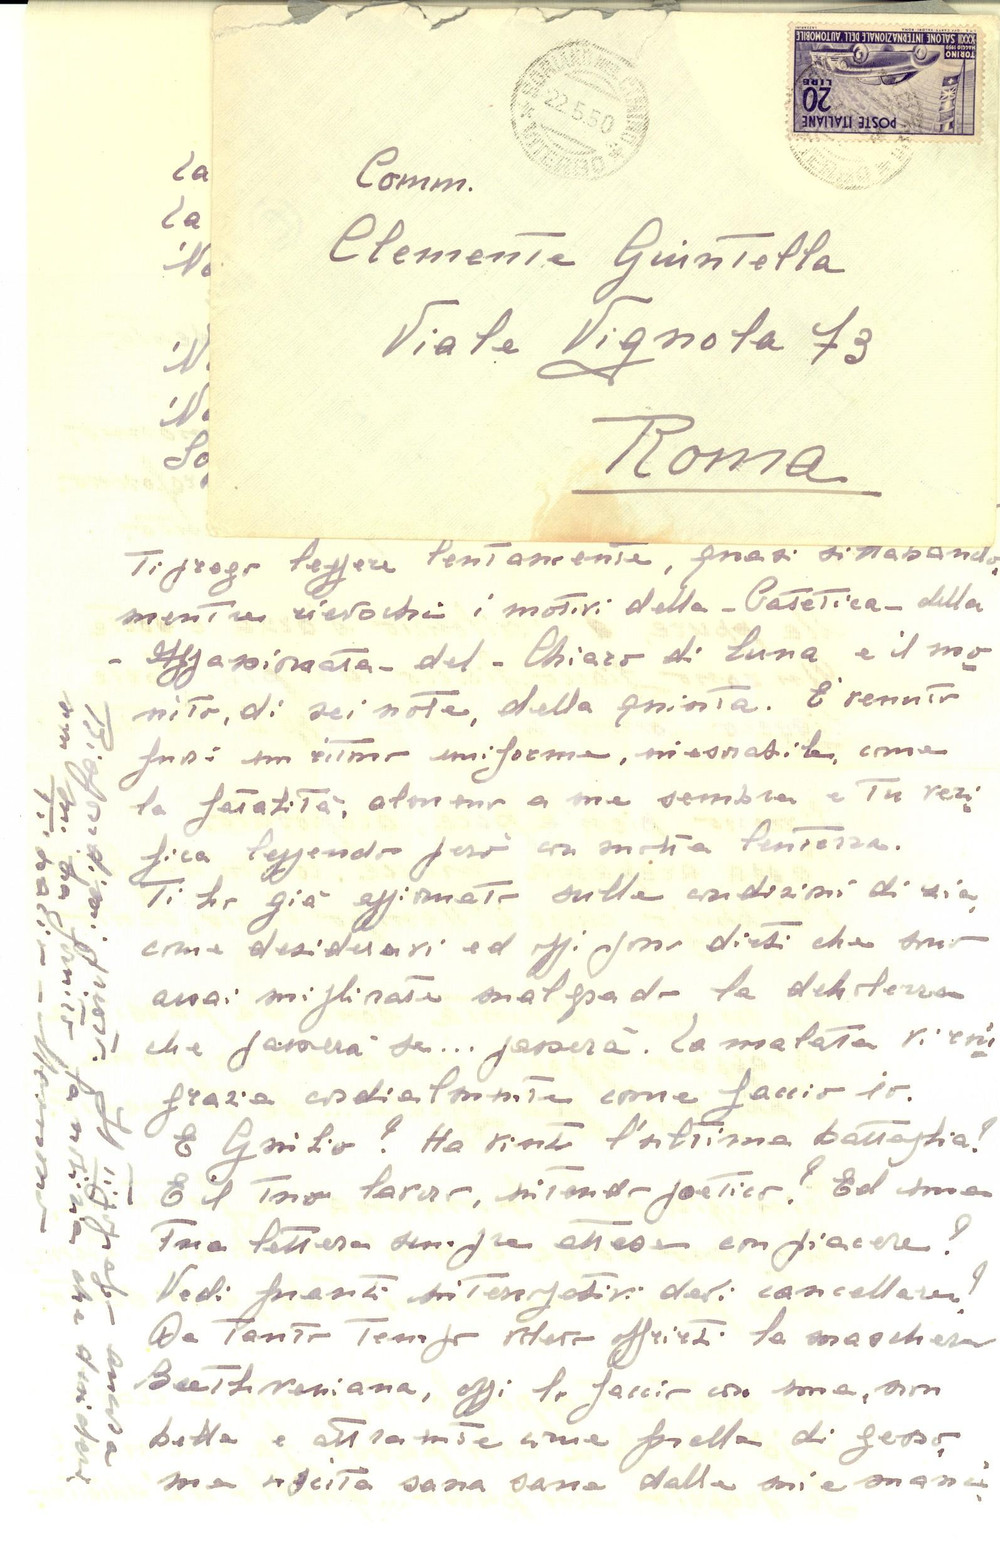 22.5.50
VITERBO
TORINO
MAGGIO 1950
XXXII SALONE INTERNAZIONALE DELL'AUTOMOBILE
20
LIRE
POSTE ITALIANE
Comm.
Clemente Guintella
Viale Vignola 73
Roma
La
La
No
N
No
So
Ti prego leggere lentamente, quasi sillabando,
mentre rievochi i motivi della - Patetica - della
- Appassionata - del - Chiaro di Luna e il mo
nito, di sei note, della quinta. E' venuto
fuori un ritmo uniforme, inesorabile, come
la fatalità, almeno a me sembra e Tu veri
fica leggendo però con molta lentezza.
Ti ho già affermato sulle condizioni di zia,
come desideravi ed oggi posso dirti che sono
assai migliorate malgrado la debolezza
che passerà se... passerà. La malata Vi rin
grazia cordialmente come faccio io.
E Giulio? Ha vinto l'ultima battaglia?
E il Tuo lavoro, intendo poetico? Ed una
Tua lettera sempre attesa con piacere?
Vedi quanti interrogativi devi cancellare!
Da tanto tempo volevo offrirti la maschera
Beethoveniana, oggi lo faccio con una, non
bella e attraente come quella di gesso,
ma uscita sana sana dalle mie mani.